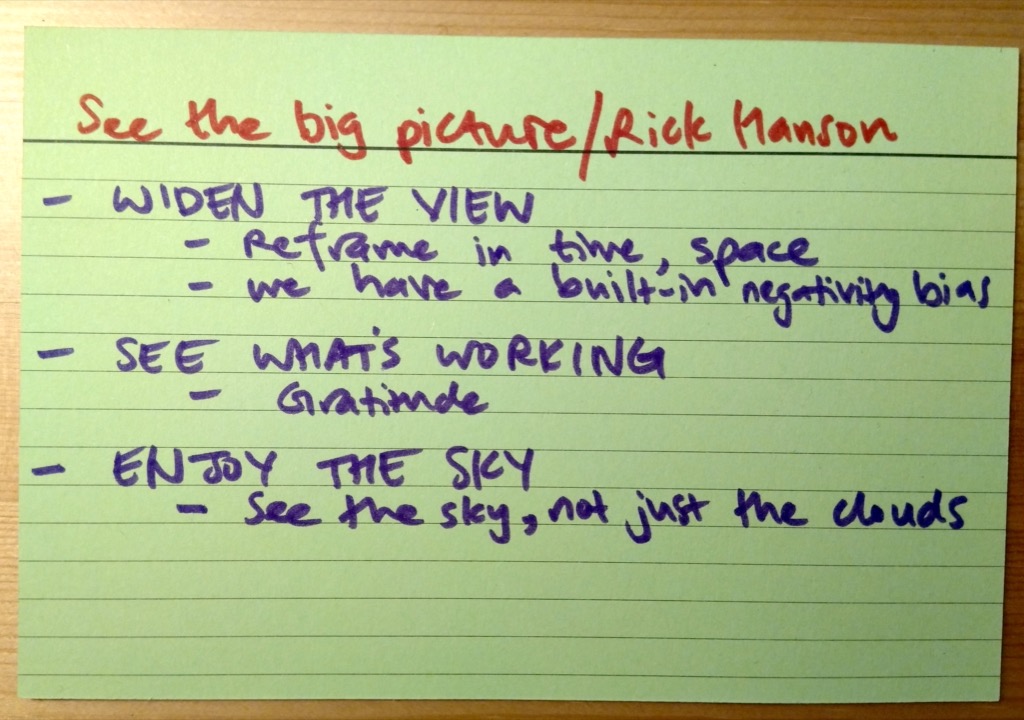 See the big picture/Rick Hanson
- WIDEN THE VIEW
- Reframe in time, space
- we have a built-in negativity bias
- SEE WHAT'S WORKING
- Gratitude
- ENJOY THE SKY
- See the sky, not just the clouds